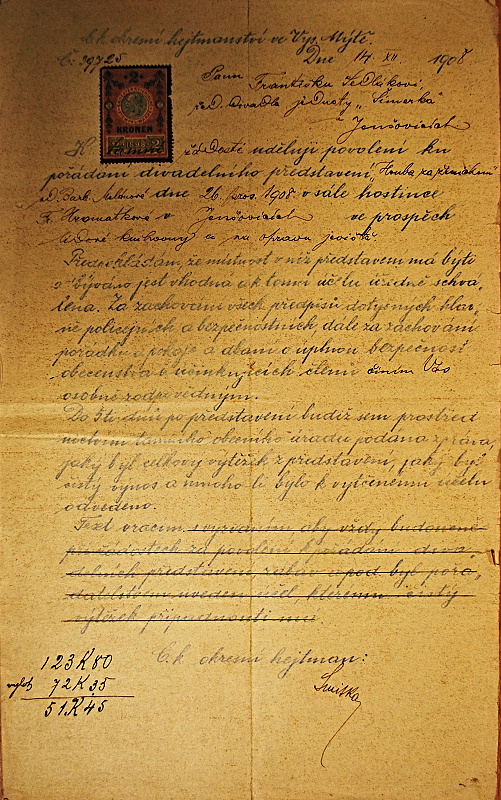 C. k. okresní hejtmanství ve Vys. Mýtě.
Č: 39725 Dne 14. XII. 1908
Panu
Františku Sedlákovi
řed. divadla jednoty „Šmerka"
v Jenšovicích
2
KRONEN
K žádosti uděluji povolení ku
pořádání divadelního představení
dne 26. pros. 1908 v sále hostince
F. Hromádkové v Jenšovicích ve prospěch
knihovny a na opravu jeviště.
Předpokládám, že místnost v níž představení má býti
jest vhodna a k tomu účelu úředně schvá-
lena. Za zachování všech předpisů dotyčných hlav-
ně policejních a bezpečnostních, dále za zachování
pořádku a pokoje a dbaní o úplnou bezpečnost
obecenstva a účinkujících členů činím Vás
osobně zodpovědným.
Do 5ti dnů po představení budiž sem prostřed-
nictvím obecního úřadu podána zpráva,
jaký byl celkový výtěžek z představení, jaký byl
čistý výnos a mnoho-li bylo k vytčenému účelu
odvedeno.
Text vracím s vyzváním aby vždy budoucně
po žádostech za povolení k pořádání diva-
delních představení, zábav a pod. byl pořa-
datelstvem uveden účel, kterému čistý
výtěžek připadnouti má
C. k. okresní hejtman:
123 K 80
72 K 35
51 K 45